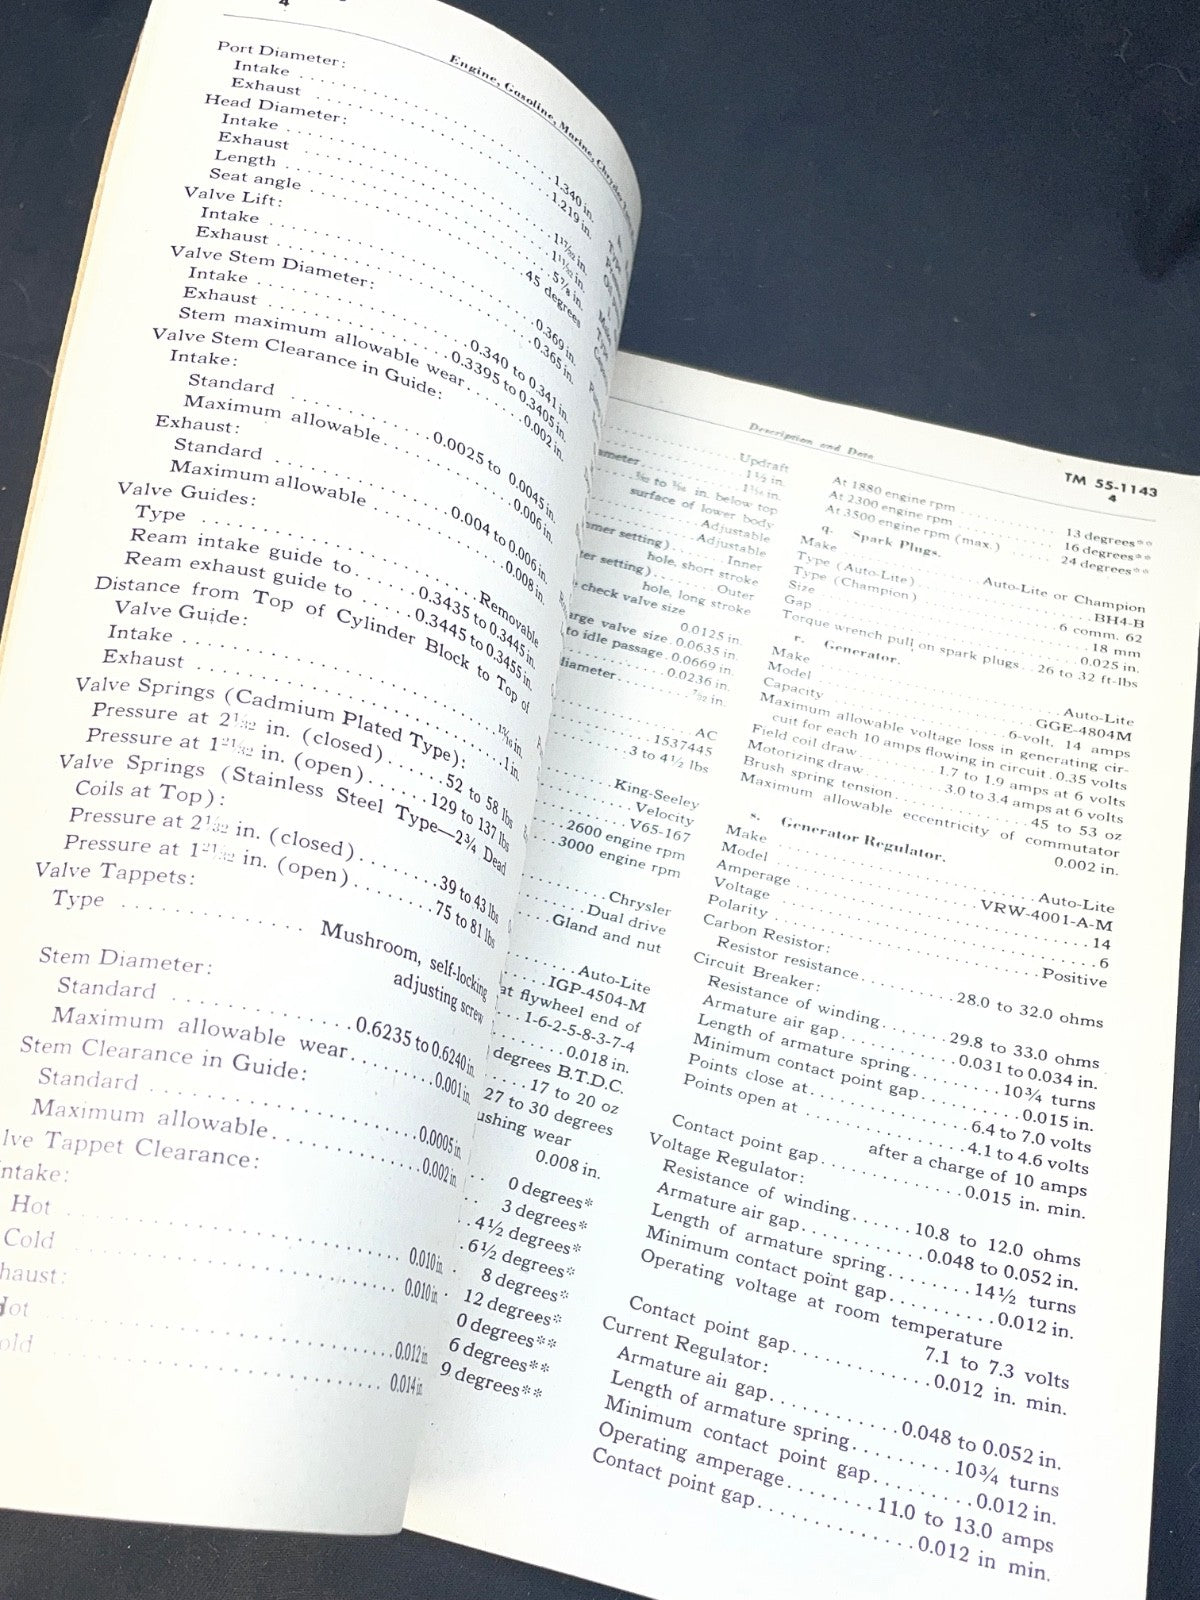 4
Engine, Gasoline, Marine, Chrysler
Port Diameter:
Intake . . . . . 1.340 in.
Exhaust . . . . . 1.219 in.
Head Diameter:
Intake . . . . . 1 17/32 in.
Exhaust . . . . . 1 11/32 in.
Length . . . . . 5 7/8 in.
Seat angle . . . . . 45 degrees
Valve Lift:
Intake . . . . . 0.369 in.
Exhaust . . . . . 0.365 in.
Valve Stem Diameter:
Intake . . . . . 0.340 to 0.341 in.
Exhaust . . . . . 0.3395 to 0.3405 in.
Stem maximum allowable wear . . . . . 0.002 in.
Valve Stem Clearance in Guide:
Intake:
Standard . . . . . 0.0025 to 0.0045 in.
Maximum allowable . . . . . 0.006 in.
Exhaust:
Standard . . . . . 0.004 to 0.006 in.
Maximum allowable . . . . . 0.008 in.
Valve Guides:
Type . . . . . Removable
Ream intake guide to . . . . . 0.3435 to 0.3445 in.
Ream exhaust guide to . . . . . 0.3445 to 0.3455 in.
Distance from Top of Cylinder Block to Top of
Valve Guide:
Intake . . . . . in.
Exhaust . . . . . 1 in.
Valve Springs (Cadmium Plated Type):
Pressure at 2 1/32 in. (closed) . . . . . 52 to 58 lbs
Pressure at 1 21/32 in. (open) . . . . . 129 to 137 lbs
Valve Springs (Stainless Steel Type—2¾ Dead
Coils at Top):
Pressure at 2 1/32 in. (closed) . . . . . 39 to 43 lbs
Pressure at 1 21/32 in. (open) . . . . . 75 to 81 lbs
Valve Tappets:
Type . . . . . Mushroom, self-locking
adjusting screw
Stem Diameter:
Standard . . . . . 0.6235 to 0.6240 in.
Maximum allowable wear . . . . . 0.001 in.
Stem Clearance in Guide:
Standard . . . . . 0.0005 in.
Maximum allowable . . . . . 0.002 in.
lve Tappet Clearance:
ntake:
Hot . . . . . 0.010 in.
Cold . . . . . 0.010 in.
haust:
Hot . . . . . 0.012 in.
old . . . . . 0.014 in.
Description and Data
TM 55-1143
4
Updraft
ameter . . . . . 1½ in.
in.
to in. below top
surface of lower body
Adjustable
Adjustable
mer setting) . . . Inner
hole, short stroke
ter setting) . . . Outer
hole, long stroke
check valve size
0.0125 in.
arge valve size . 0.0635 in.
to idle passage . 0.0669 in.
0.0236 in.
diameter . . . . . in.
AC
1537445
3 to 4½ lbs
King-Seeley
Velocity
V65-167
2600 engine rpm
3000 engine rpm
Chrysler
Dual drive
Gland and nut
Auto-Lite
IGP-4504-M
at flywheel end of
1-6-2-5-8-3-7-4
0.018 in.
degrees B.T.D.C.
17 to 20 oz
27 to 30 degrees
ushing wear
0.008 in.
0 degrees*
3 degrees*
4½ degrees*
6½ degrees*
8 degrees*
12 degrees*
0 degrees**
6 degrees**
9 degrees**
At 1880 engine rpm . . . . . 13 degrees**
At 2300 engine rpm . . . . . 16 degrees**
At 3500 engine rpm (max.) . . . . . 24 degrees**
q. Spark Plugs.
Make . . . . . Auto-Lite or Champion
Type (Auto-Lite) . . . . . BH4-B
Type (Champion) . . . . . 6 comm. 62
Size . . . . . 18 mm
Gap . . . . . 0.025 in.
Torque wrench pull on spark plugs . . 26 to 32 ft-lbs
r. Generator.
Make . . . . . Auto-Lite
Model . . . . . GGE-4804M
Capacity . . . . . 6-volt, 14 amps
Maximum allowable voltage loss in generating cir-
cuit for each 10 amps flowing in circuit . 0.35 volts
Field coil draw . . . . . 1.7 to 1.9 amps at 6 volts
Motorizing draw . . . . . 3.0 to 3.4 amps at 6 volts
Brush spring tension . . . . . 45 to 53 oz
Maximum allowable eccentricity of commutator
0.002 in.
s. Generator Regulator.
Make . . . . . Auto-Lite
Model . . . . . VRW-4001-A-M
Amperage . . . . . 14
Voltage . . . . . 6
Polarity . . . . . Positive
Carbon Resistor:
Resistor resistance . . . . . 28.0 to 32.0 ohms
Circuit Breaker:
Resistance of winding . . . . . 29.8 to 33.0 ohms
Armature air gap . . . . . 0.031 to 0.034 in.
Length of armature spring . . . . . 10¾ turns
Minimum contact point gap . . . . . 0.015 in.
Points close at . . . . . 6.4 to 7.0 volts
Points open at . . . . . 4.1 to 4.6 volts
after a charge of 10 amps
Contact point gap . . . . . 0.015 in. min.
Voltage Regulator:
Resistance of winding . . . . . 10.8 to 12.0 ohms
Armature air gap . . . . . 0.048 to 0.052 in.
Length of armature spring . . . . . 14½ turns
Minimum contact point gap . . . . . 0.012 in.
Operating voltage at room temperature
7.1 to 7.3 volts
Contact point gap . . . . . 0.012 in. min.
Current Regulator:
Armature air gap . . . . . 0.048 to 0.052 in.
Length of armature spring . . . . . 10¾ turns
Minimum contact point gap . . . . . 0.012 in.
Operating amperage . . . . . 11.0 to 13.0 amps
Contact point gap . . . . . 0.012 in min.